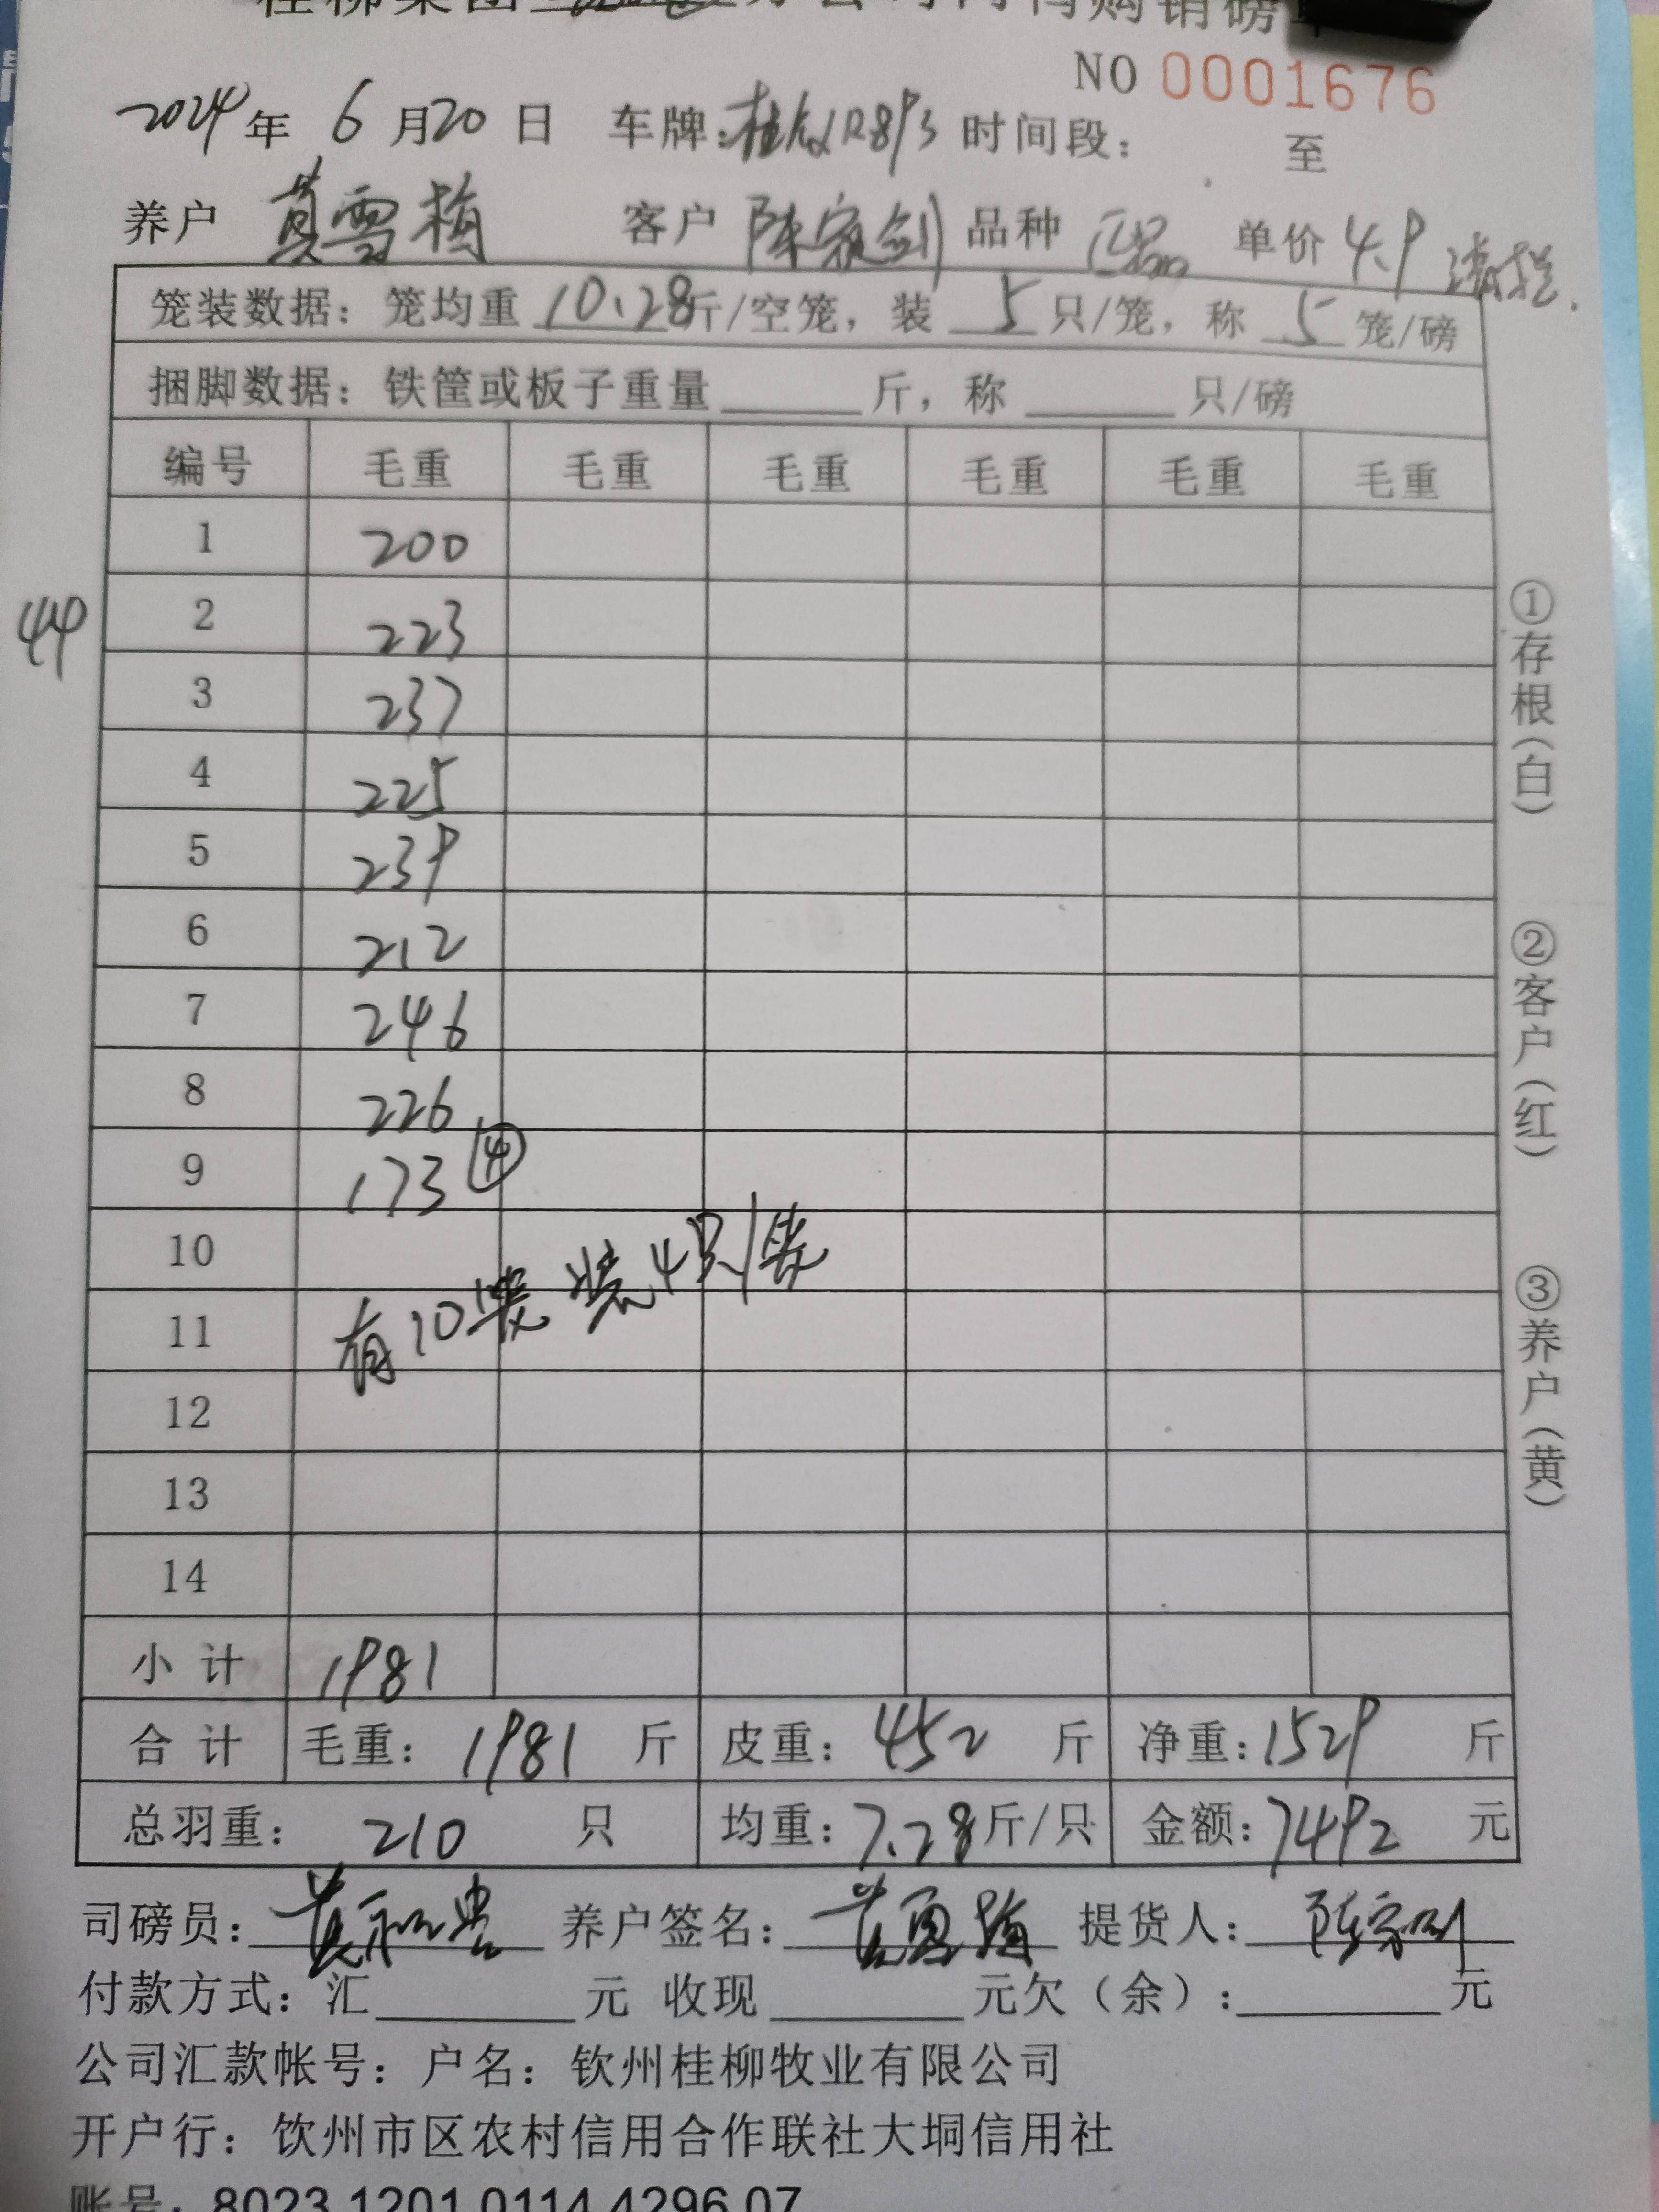 桂柳集团 分公司肉鸭购销磅单
NO 0001676
2024年 6月20日 车牌: 时间段: 至
养户 黄雪梅 客户 陈家剑 品种 正品 单价 4.9 清栏.
笼装数据: 笼均重 10.28斤/空笼, 装 5 只/笼, 称 5 笼/磅
捆脚数据: 铁筐或板子重量 斤, 称 只/磅
编号 毛重 毛重 毛重 毛重 毛重 毛重
1 200
44
2 223
3 237
4 225
5 239
6 212
7 246
8 226
9 173 ④
10
有10笼 装4只/笼
11
12
13
14
小 计 1981
合 计 毛重: 1981 斤 皮重: 452 斤 净重: 1529 斤
总羽重: 210 只 均重: 7.28斤/只 金额: 7492 元
司磅员: 养户签名: 黄雪梅 提货人: 陈家剑
付款方式: 汇 元 收现 元欠(余): 元
公司汇款帐号: 户名: 钦州桂柳牧业有限公司
开户行: 饮州市区农村信用合作联社大垌信用社
账号: 8023 1201 0114 4296 07
①存根(白)
②客户(红)
③养户(黄)